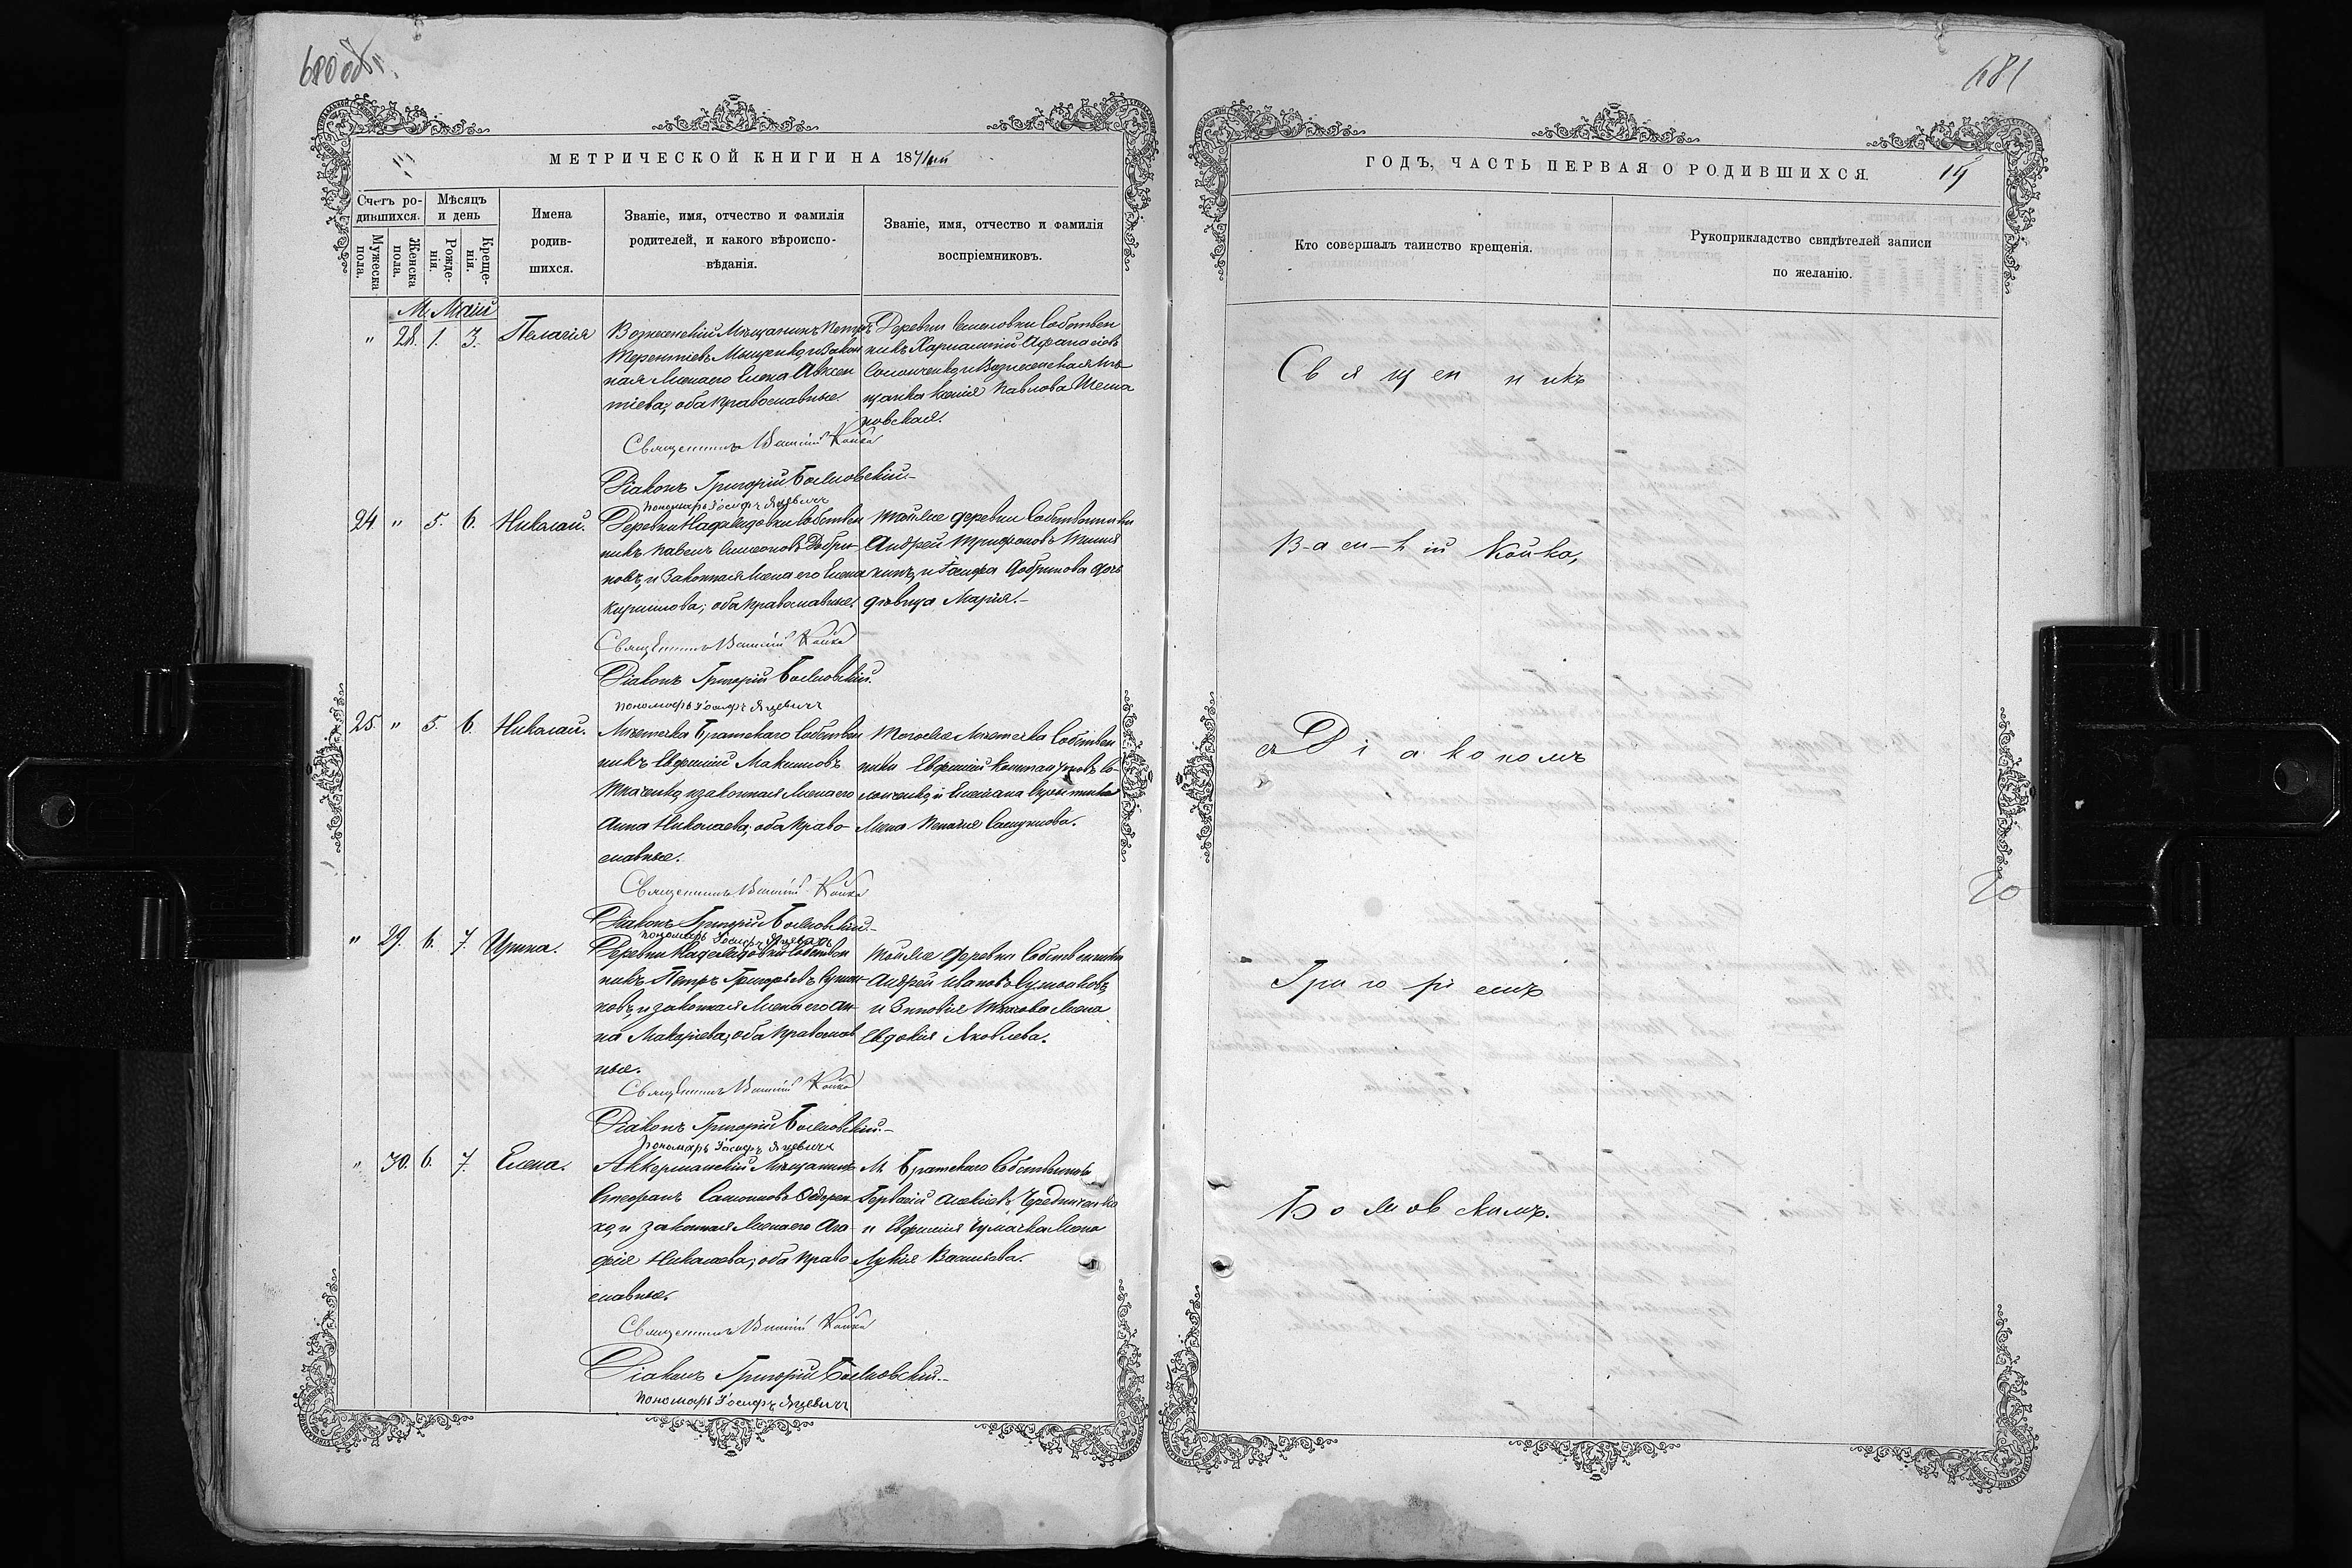 680 об.
МЕТРИЧЕСКОЙ КНИГИ НА 1871
Счетъ ро-
дившихся.
Мѣсяцъ
и день
Мужеска
пола.
Женска
пола.
Рожде-
нія.
Креще-
нія.
Имена
родив-
шихся.
Званіе, имя, отчество и фамилія
родителей, и какого вѣроиспо-
вѣданія.
Званіе, имя, отчество и фамилія
воспріемниковъ.
М. Маій
" 28. 1. 3. Пелагія
Вознесенскій Мѣщанинъ Петръ
Терентіевъ Мищенко, и Закон
ная Жена его Елена Авксен
тіева; оба православные.
Деревни Собствен
никъ Харлампій Афанасіевъ
и Вознесенская Мѣ-
щанка Ксенія Павлова
повская.
Священникъ Василій Койко
Діаконъ Григорій Божковскій
Пономарь Іосифъ Яцевичъ
24. " 5. 6. Николай.
Деревни Надеждовки Собствен
никъ Павелъ Симеоновъ Добри-
новъ, и Законная Жена его Елена
Кириллова; оба православные.
Той же деревни Собственники
Андрей Трифоновъ
и Іосифа Добринова дочь
дѣвица Марія.
Священникъ Василій Койко
Діаконъ Григорій Божковскій.
Пономарь Іосифъ Яцевичъ
25. " 5. 6. Николай.
Мѣстечка Братскаго Собствен
никъ Евфимій Максимовъ
Ткаченко, и законная Жена его
Анна Николаева; оба Право-
славные.
Тогоже Мѣстечка Собствен
ники Евфимій
и
Жена Пелагія
Священникъ Василій Койко
Діаконъ Григорій Божковскій
Пономарь Іосифъ Яцевичъ
" 29. 6. 7. Ирина.
Деревни Надеждовки Собствен
никъ Петръ Григорьевъ
новъ, и законная Жена его Ан-
на Макаріева; оба Православ
ные.
Той же деревни Собственники
Андрей Ивановъ
и Зиновія Жена
Евдокія Яковлева.
Священникъ Василій Койко
Діаконъ Григорій Божковскій.
Пономарь Іосифъ Яцевичъ
" 30. 6. 7. Елена.
Аккерманскій Мѣщанинъ
Стефанъ Ѳедорен
ко, и законная Жена его Ага
фія Николаева; оба Право
славные.
М. Братскаго Собственникъ
Гервасій Алексіевъ Чередниченко
и Евфимія Жена
Лукія Васильева.
Священникъ Василій Койко
Діаконъ Григорій Божковскій.
Пономарь Іосифъ Яцевичъ
681
ГОДЪ, ЧАСТЬ ПЕРВАЯ О РОДИВШИХСЯ.
Кто совершалъ таинство крещенія.
Рукоприкладство свидѣтелей записи
по желанію.
Священникъ
Василій Койко,
съ Діакономъ
Григоріемъ
Божковскимъ.